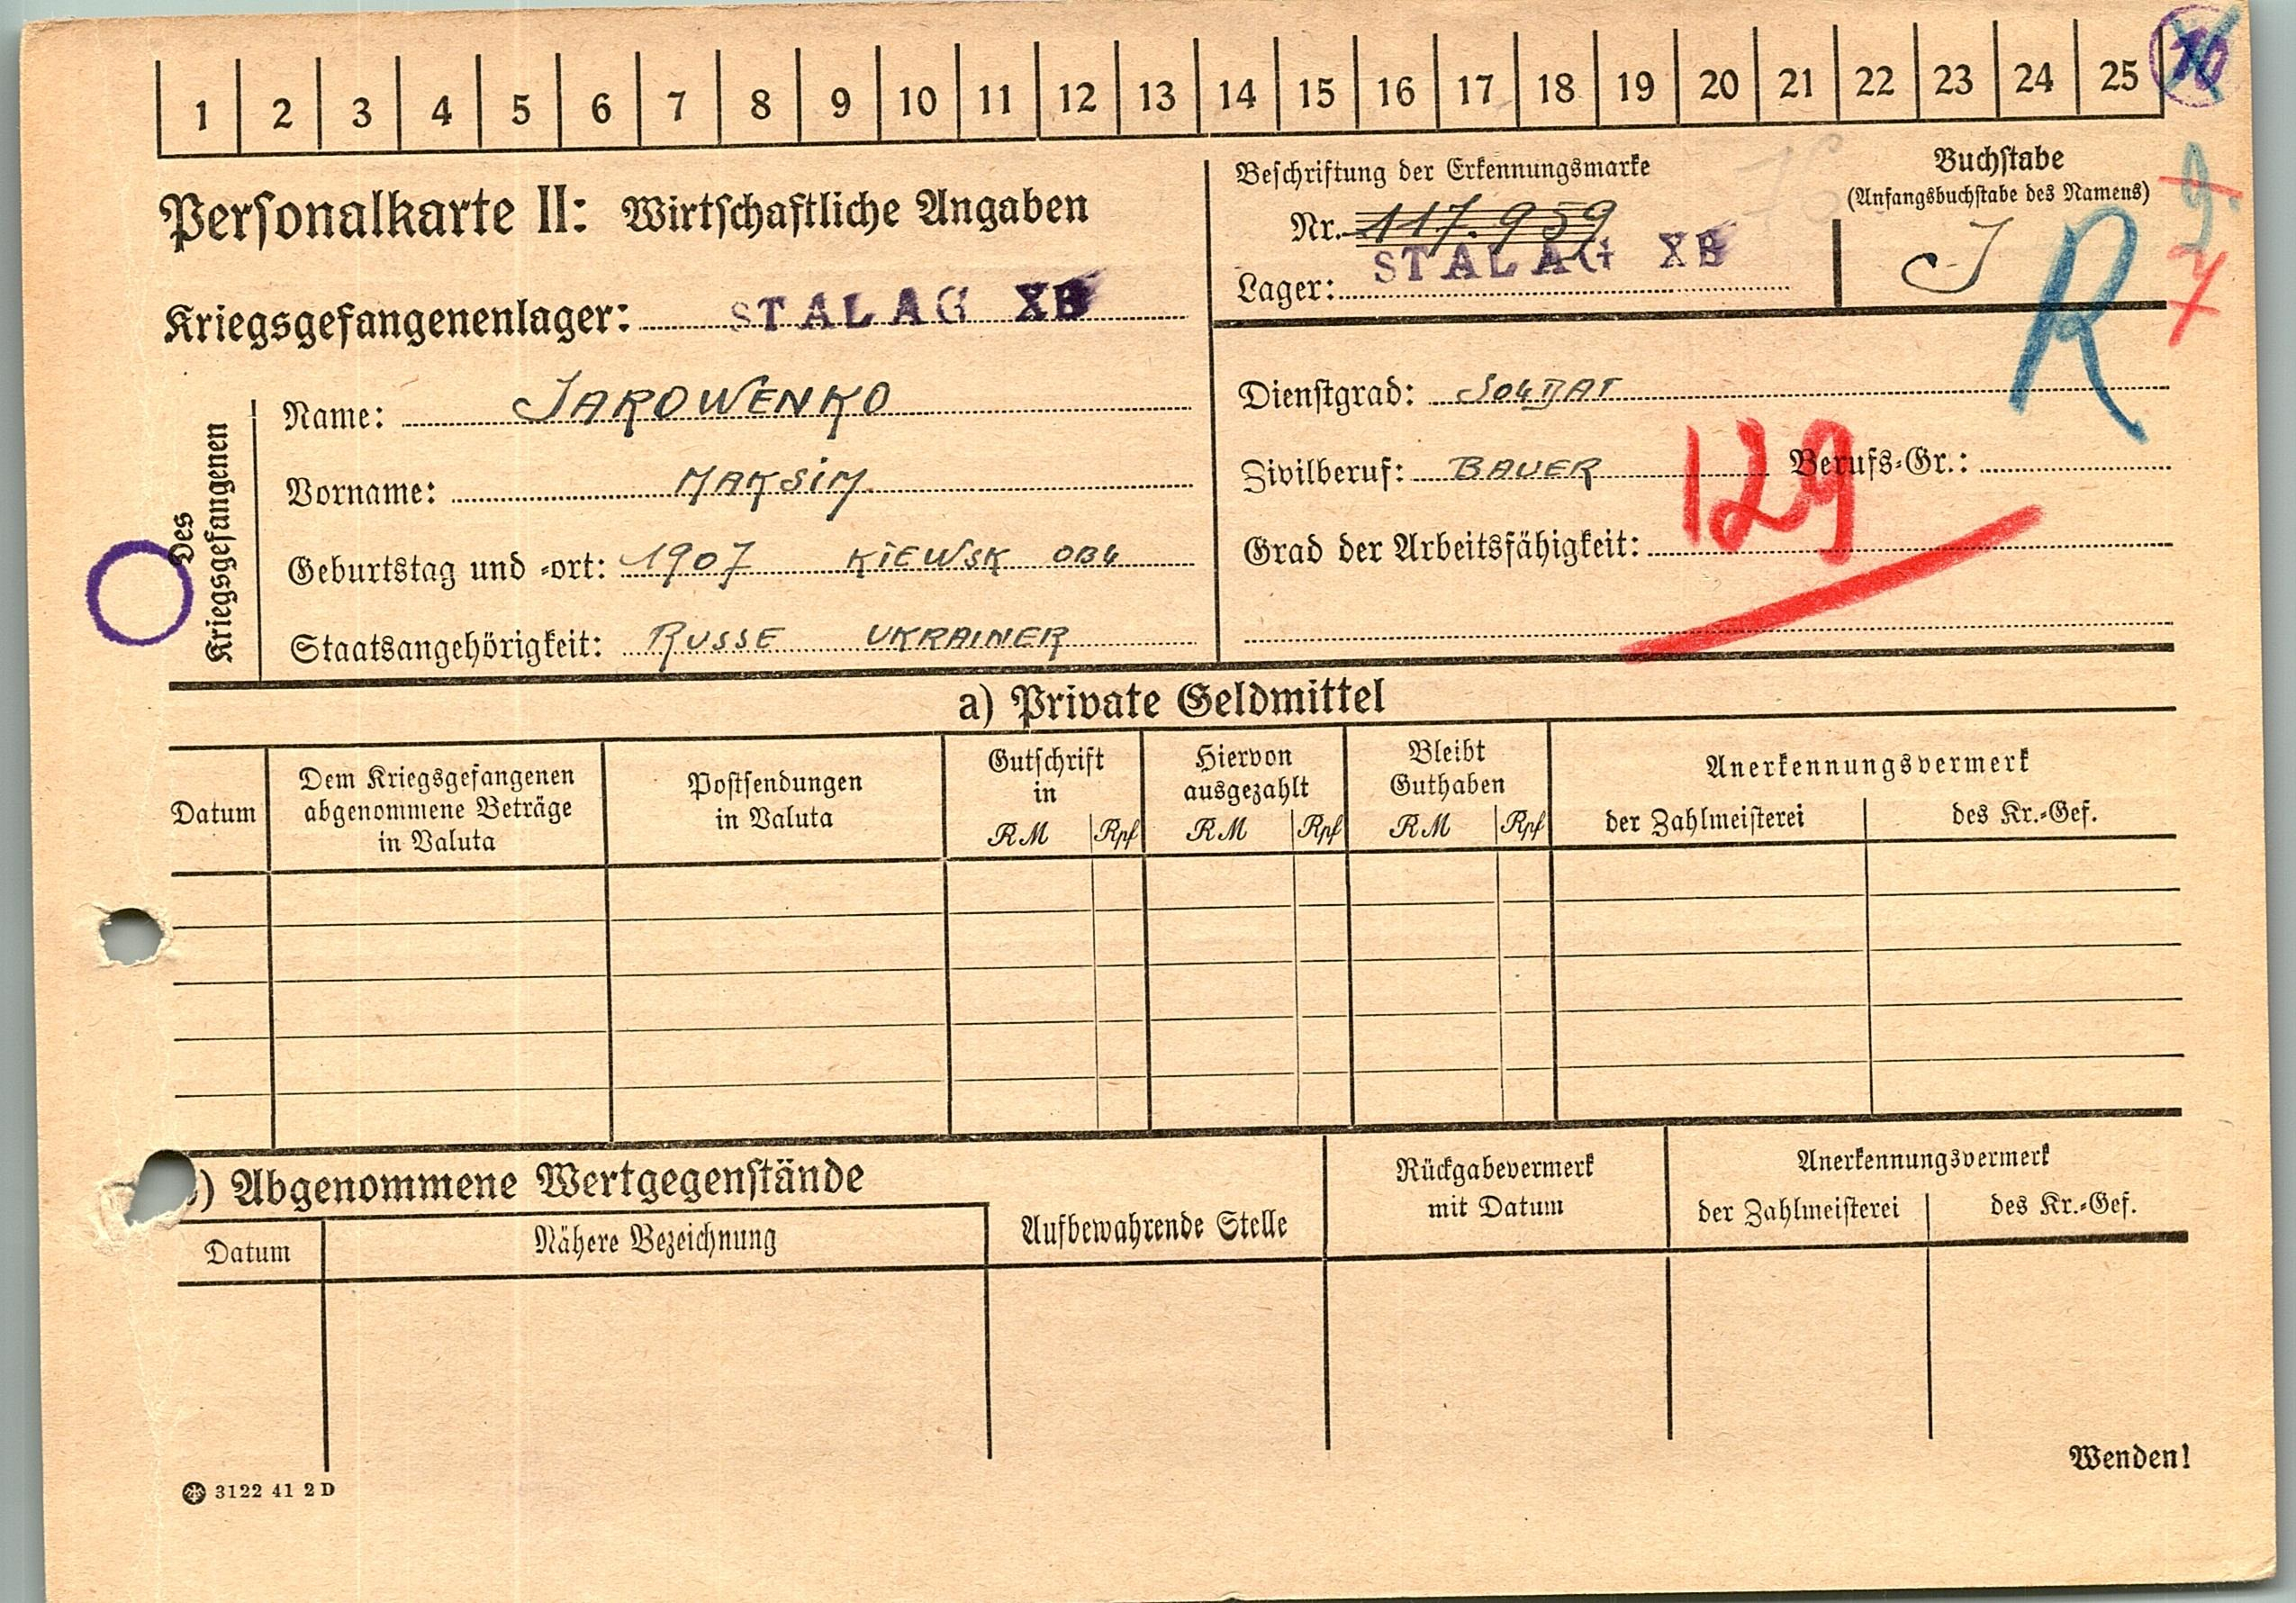 1 2 3 4 5 6 7 8 9 10 11 12 13 14 15 16 17 18 19 20 21 22 23 24 25
Personalkarte II: Wirtschaftliche Angaben
Kriegsgefangenenlager: STALAG XB
Beschriftung der Erkennungsmarke
Nr. 117.959
Lager: STALAG XB
Buchstabe
(Anfangsbuchstabe des Namens)
J
R
9
7
Des Kriegsgefangenen
Name: JAROWENKO
Vorname: MAKSIM
Geburtstag und -ort: 1907 KIEWSK OBL
Staatsangehörigkeit: RUSSE UKRAINER
Dienstgrad: SOLDAT
Zivilberuf: BAUER Berufs-Gr.:
Grad der Arbeitsfähigkeit:
129
a) Private Geldmittel
Datum
Dem Kriegsgefangenen
abgenommene Beträge
in Valuta
Postsendungen
in Valuta
Gutschrift
in
RM Rpf
Hiervon
ausgezahlt
RM Rpf
Bleibt
Guthaben
RM Rpf
Anerkennungsvermerk
der Zahlmeisterei des Kr.-Gef.
) Abgenommene Wertgegenstände
Datum
Nähere Bezeichnung
Aufbewahrende Stelle
Rückgabevermerk
mit Datum
Anerkennungsvermerk
der Zahlmeisterei des Kr.-Gef.
Wenden!
3122 41 2 D